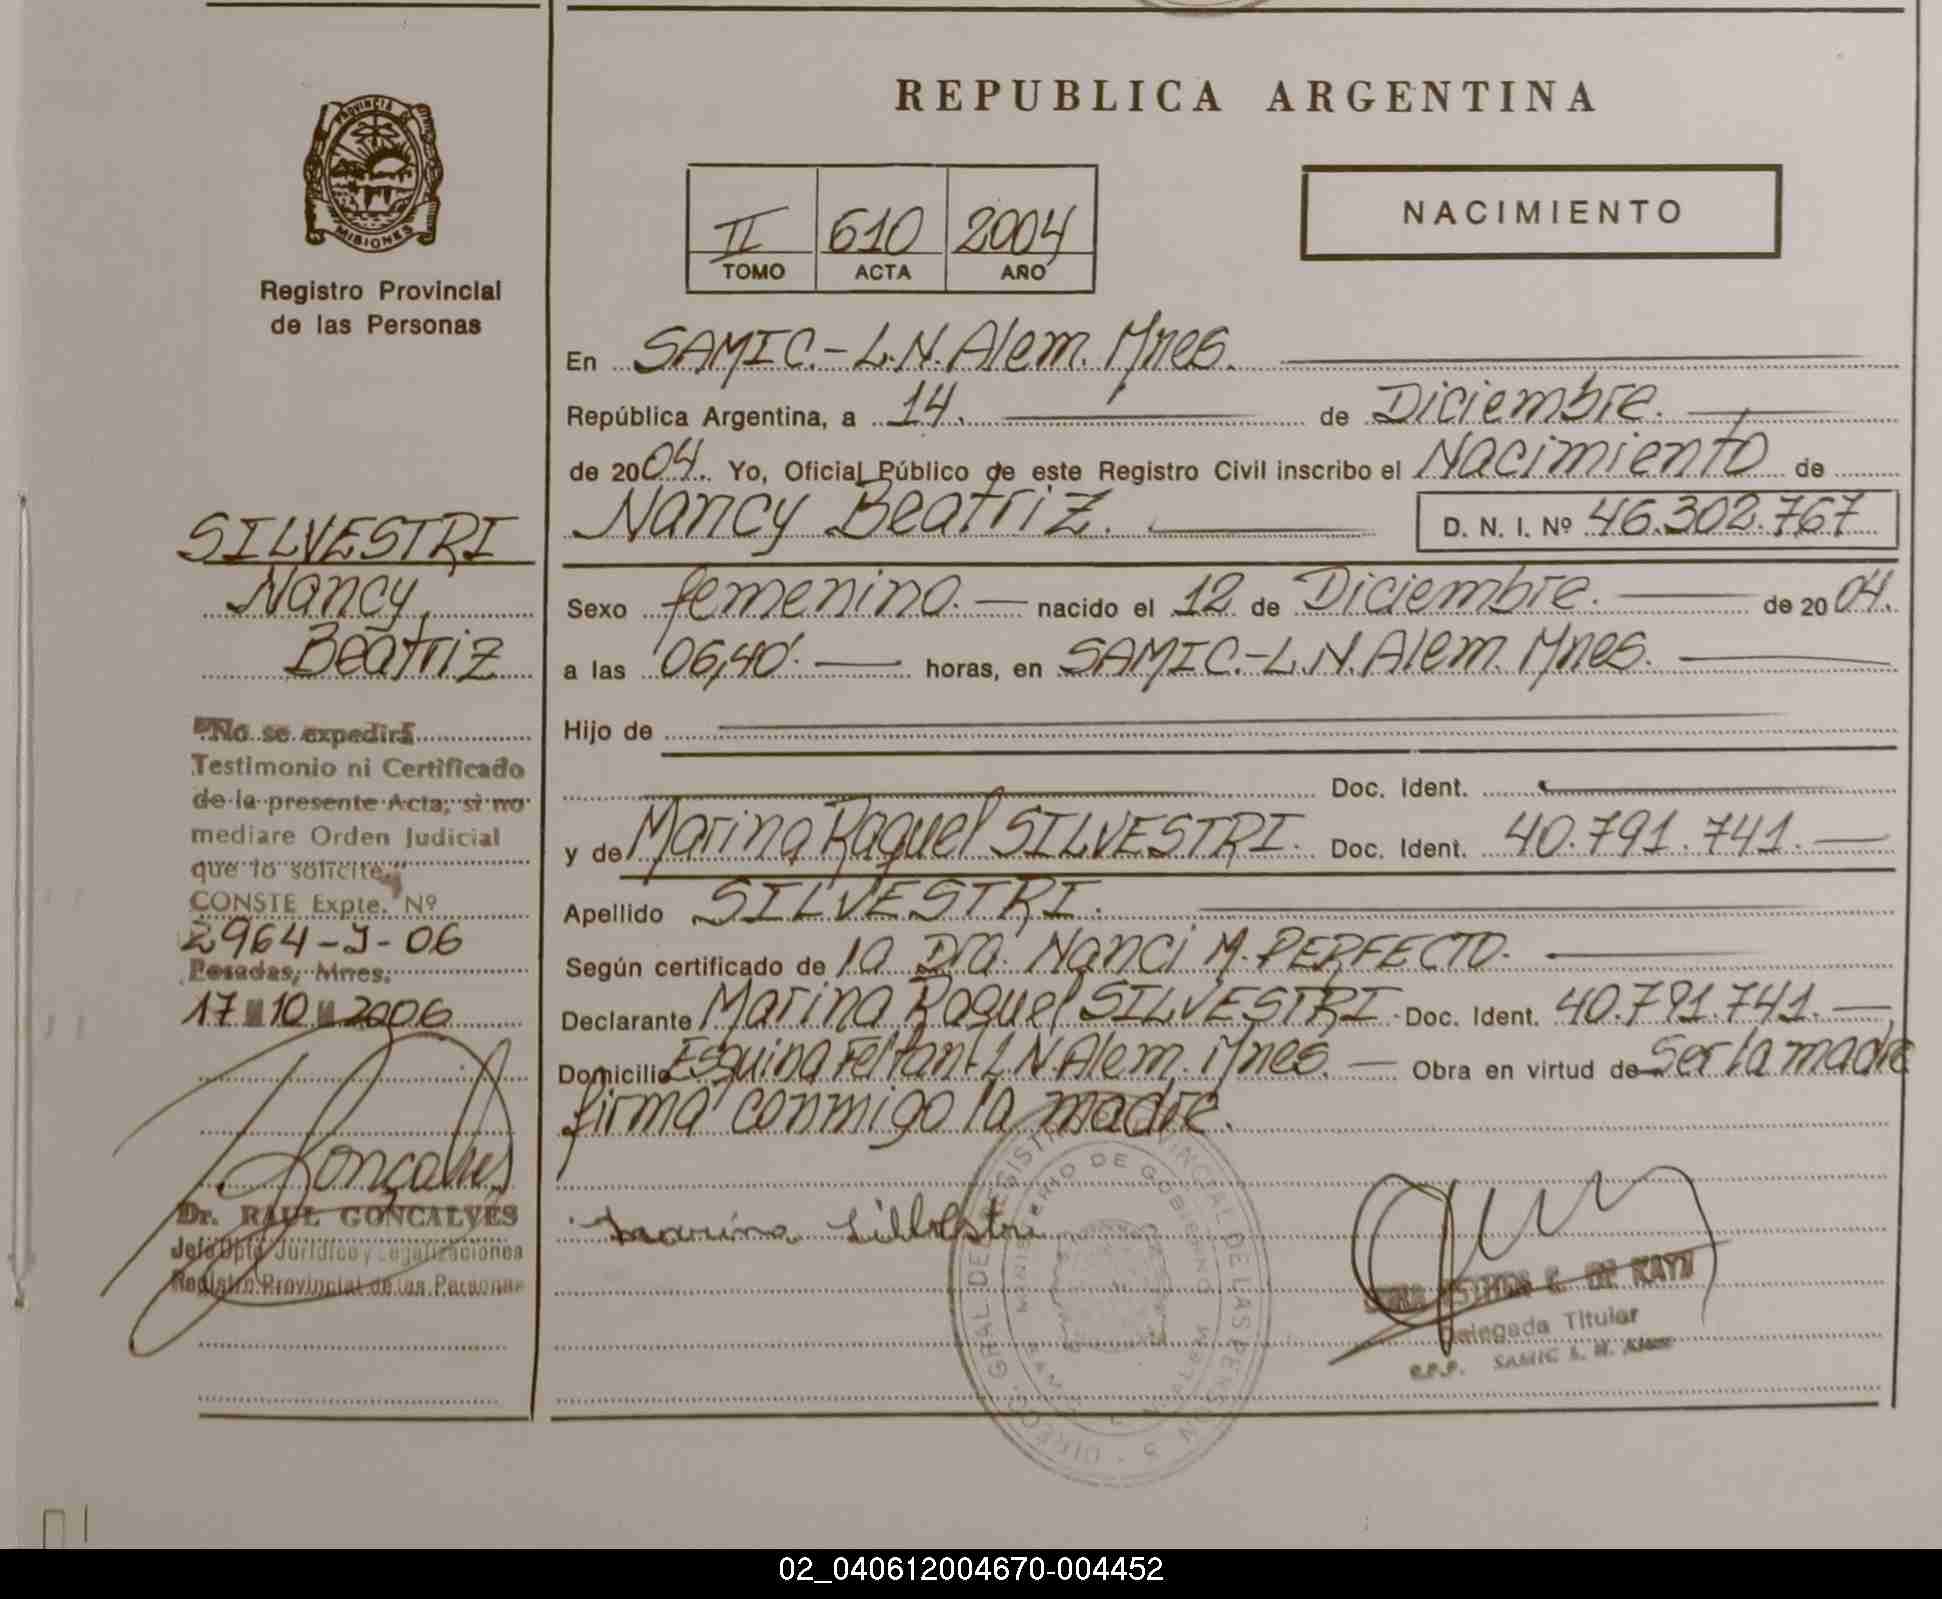 REPUBLICA ARGENTINA
PROVINCIA DE
MISIONES
Registro Provincial
de las Personas
II 610 2004
TOMO ACTA AÑO
NACIMIENTO
En SAMIC.-L.N.Alem. Mnes.
República Argentina, a 14. de Diciembre.
de 2004. Yo, Oficial Público de este Registro Civil inscribo el Nacimiento de
Nancy Beatriz. D. N. I. Nº 46.302.767
Sexo femenino. nacido el 12 de Diciembre. de 2004.
a las 06,40'. horas, en SAMIC.-L.N.Alem. Mnes.
Hijo de
Doc. Ident.
y de Marina Raquel SILVESTRI. Doc. Ident. 40.791.741.
Apellido SILVESTRI.
Según certificado de la Dra. Nanci M. PERFECTO.
Declarante Marina Raquel SILVESTRI. Doc. Ident. 40.791.741.
Domicilio Esquina Feltan-L.N.Alem. Mnes. Obra en virtud de Ser la madre
firma conmigo la madre.
marina Silvestri
DE KAYN
Delegada Titular
R.P.P. SAMIC L. N. Alem
SILVESTRI
Nancy
Beatriz
"No se expedirá
Testimonio ni Certificado
de la presente Acta, si no
mediare Orden Judicial
que lo solicite."
CONSTE Expte. Nº
2964-J-06
Posadas, Mnes.
17 10 2006
Gonçalves
Dr. RAUL GONCALVES
Jefe Dpto Jurídico y Legalizaciones
Registro Provincial de las Personas
DIRECC. GRAL DEL REGISTRO PROVINCIAL DE LAS PERSONAS
MINISTERIO DE GOBIERNO
SAMIC L. N. ALEM
02_040612004670-004452